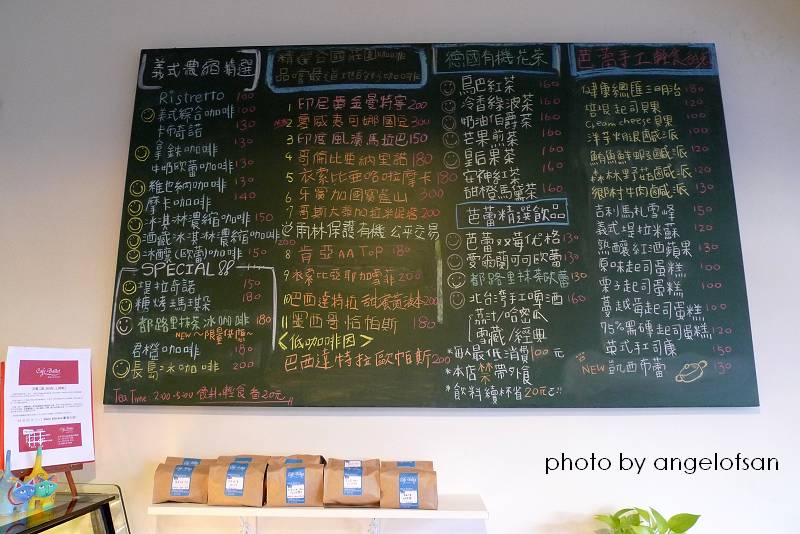 義式濃縮精選
Ristretto 100
義式綜合咖啡 100
卡布奇諾 130
拿鐵咖啡 130
牛奶歐蕾咖啡 130
維也納咖啡 130
摩卡咖啡 140
冰淇淋濃縮咖啡 150
酒藏冰淇淋濃縮咖啡 200
冰釀(歐蕾)咖啡 150
SPECIAL
堤拉奇諾 150
糖烤瑪琪朵 180
都路里抹茶冰咖啡 180
NEW~限量供應~
君橙咖啡 180
長島冰咖啡 200
Tea Time 2:00-5:00 飲料+輕食 省20元
精選各國莊園咖啡
品嚐最道地的咖啡
1 印尼爵金曼特寧 200
2 夏威夷可娜 300
3 印度風漬馬拉巴 150
4 哥倫比亞納里諾 180
5 衣索比亞哈拉摩卡 180
6 牙買加國寶藍山 300
7 哥斯大黎加拉米妮塔 200
雨林保護有機 公平交易
8 肯亞AA TOP 180
9 衣索比亞耶加雪菲 200
10 巴西達特拉 200
11 墨西哥恰帕斯 180
<低咖啡因>
巴西達特拉歐帕斯 200
德國有機花茶
烏巴紅茶 160
冷香綠波茶 160
奶油伯爵茶 160
芒果煎茶 160
皇后果茶 160
安神紓茶 160
甜橙瑪黛茶 160
芭蕾精選飲品
芭蕾双哥代格 130
愛爾蘭可可歐蕾 130
都路里抹茶歐蕾 130
北台灣手工啤酒 160
(蒸汁/哈密瓜
雪藏/經典
*每人最低消費100元
*本店禁帶外食
*飲料續杯省20元!!
芭蕾手工輕食
健康總匯三明治 180
焙根起司貝果 120
Cream cheese貝果 100
洋芋培根鹹派 130
鮪魚鮮蝦鹹派 130
森林野菇鹹派 130
鄉村牛肉鹹派 130
吉利馬札雪峰 150
義式堤拉米蘇 120
熱釀紅酒蘋果 130
原味起司蛋糕 100
栗子起司蛋糕 100
蔓越莓起司蛋糕 100
75%黑磚起司蛋糕 120
英式手工司康 150
NEW 凱西布蕾 130
Café Ballet
photo by angelofsan